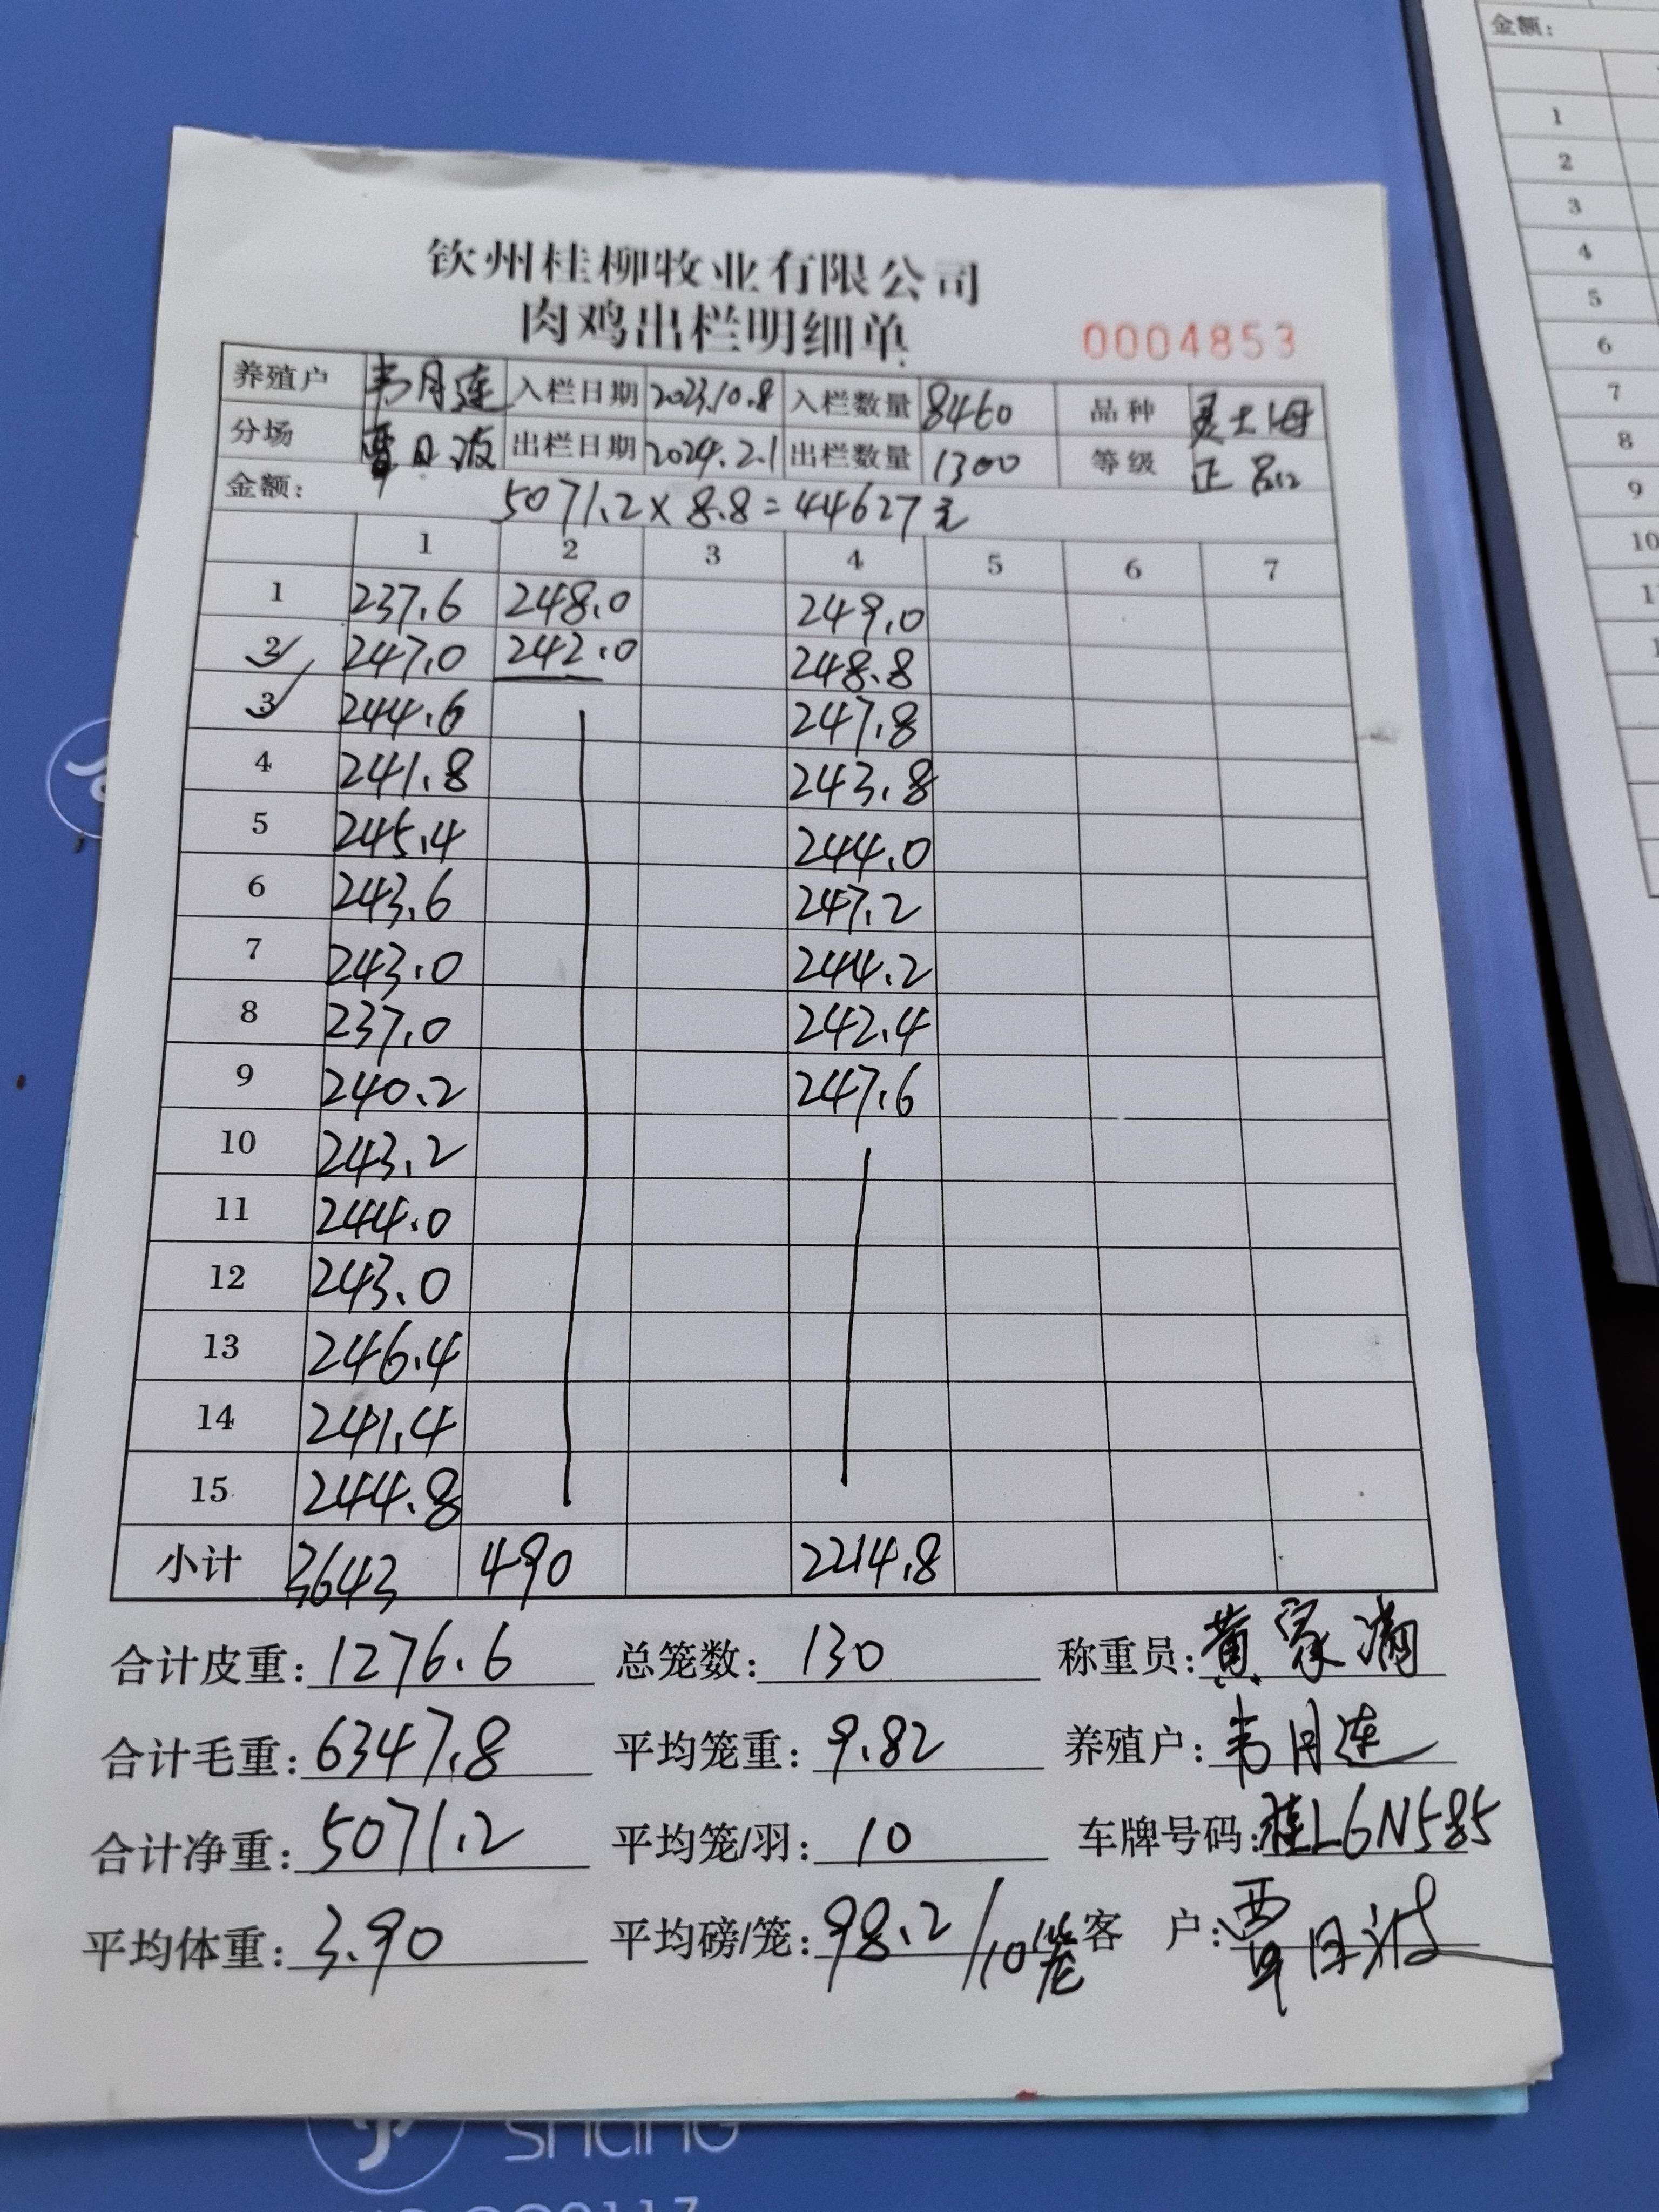 钦州桂柳牧业有限公司
肉鸡出栏明细单
0004853
养殖户 韦月连 入栏日期 2023.10.8 入栏数量 8460 品种
分场 覃日波 出栏日期 2024.2.1 出栏数量 1300 等级 正品
金额: 5071.2×8.8=44627元
1 2 3 4 5 6 7
1 237.6 248.0 249.0
2 247.0 242.0 248.8
3 244.6 247.8
4 241.8 243.8
5 245.4 244.0
6 243.6 247.2
7 243.0 244.2
8 237.0 242.4
9 240.2 247.6
10 243.2
11 244.0
12 243.0
13 246.4
14 241.4
15 244.8
小计 3643 490 2214.8
合计皮重: 1276.6 总笼数: 130 称重员: 黄家满
合计毛重: 6347.8 平均笼重: 9.82 养殖户: 韦月连
合计净重: 5071.2 平均笼/羽: 10 车牌号码: 桂L6N585
平均体重: 3.90 平均磅/笼: 98.2/10笼 客 户: 覃日波
金额:
1
2
3
4
5
6
7
8
9
10